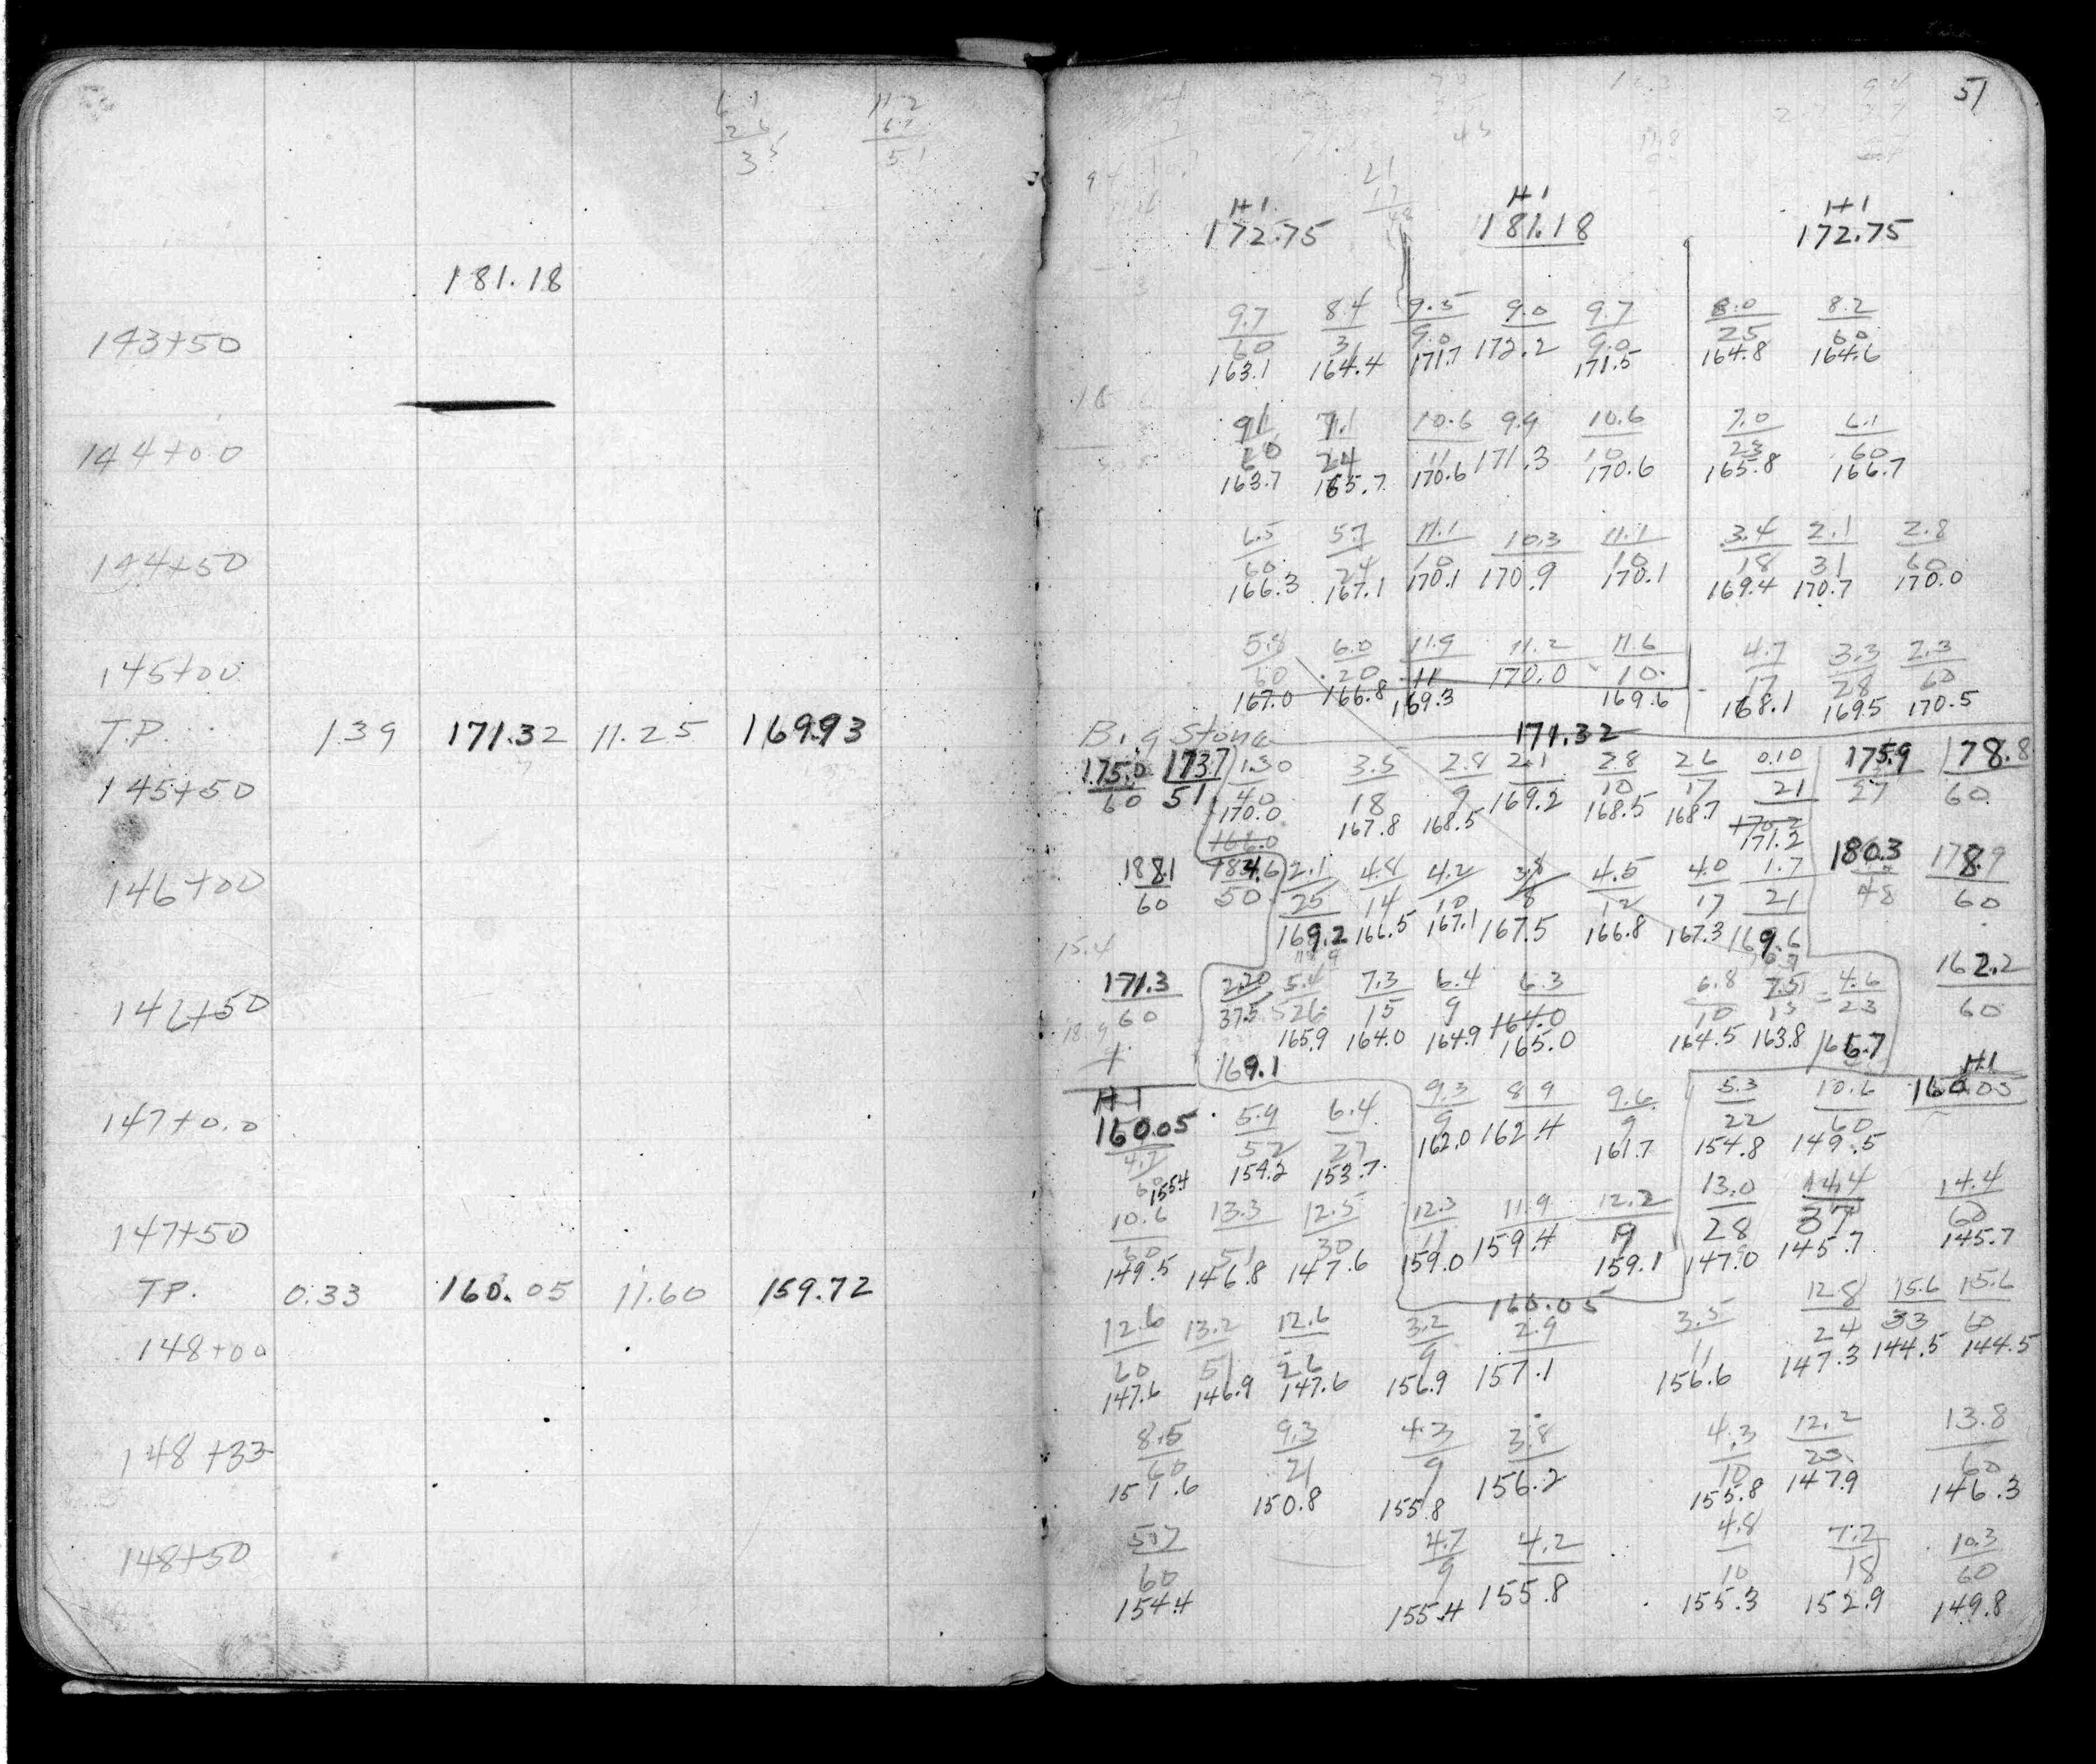 51
H1 H1 H1
172.75 181.18 172.75
181.18
143+50
9.7 8.4 9.5 9.0 9.7 8.0 8.2
60 31 9.0 9.0 25 60
163.1 164.4 171.7 172.2 171.5 164.8 164.6
144+00
91 7.1 10.6 9.9 10.6 7.0 6.1
60 24 11 10 23 60
163.7 165.7 170.6 171.3 170.6 165.8 166.7
144+50
6.5 5.7 11.1 10.3 11.1 3.4 2.1 2.8
60 24 10 10 18 31 60
166.3 167.1 170.1 170.9 170.1 169.4 170.7 170.0
145+00
5.8 6.0 11.9 11.2 11.6 4.7 3.3 2.3
60 20 11 10 17 28 60
167.0 166.8 169.3 170.0 169.6 168.1 169.5 170.5
T.P. 1.39 171.32 11.25 169.93 Big Stone 171.32
145+50
175.0 173.7 1.30 3.5 2.8 2.1 2.8 2.6 0.10 175.9 178.8
60 51 40 18 9 10 17 21 27 60
170.0 167.8 168.5 169.2 168.5 168.7 171.2
166.0
146+00
188.1 2.1 4.8 4.2 3.8 4.5 4.0 1.7 180.3 178.9
60 50 25 14 10 8 12 17 21 48 60
169.2 166.5 167.1 167.5 166.8 167.3 169.6
15.4
146+50
171.3 2.20 5.4 7.3 6.4 6.3 6.8 7.5 4.6 162.2
60 37.5 26 15 9 164.0 10 13 23 60
165.9 164.0 164.9 165.0 164.5 163.8 166.7
169.1
H1 H1
147+0.0
160.05 5.9 6.4 9.3 8.9 9.6 5.3 10.6 160.05
4.7 52 27 9 9 22 60
60 155.4 154.2 153.7 162.0 162.4 161.7 154.8 149.5
147+50
10.6 13.3 12.5 12.3 11.9 12.2 13.0 14.4 14.4
60 51 30 11 9 28 37 60
149.5 146.8 147.6 159.0 159.4 159.1 147.0 145.7 145.7
T.P. 0.33 160.05 11.60 159.72 160.05
148+00
12.6 13.2 12.6 3.2 2.9 3.5 12.8 15.6 15.6
60 51 26 9 11 24 33 60
147.6 146.9 147.6 156.9 157.1 156.6 147.3 144.5 144.5
148+33
8.5 9.3 4.3 3.8 4.3 12.2 13.8
60 21 9 10 23 60
151.6 150.8 155.8 156.2 155.8 147.9 146.3
148+50
5.7 4.7 4.2 4.8 7.2 10.3
60 9 10 18 60
154.4 155.4 155.8 155.3 152.9 149.8